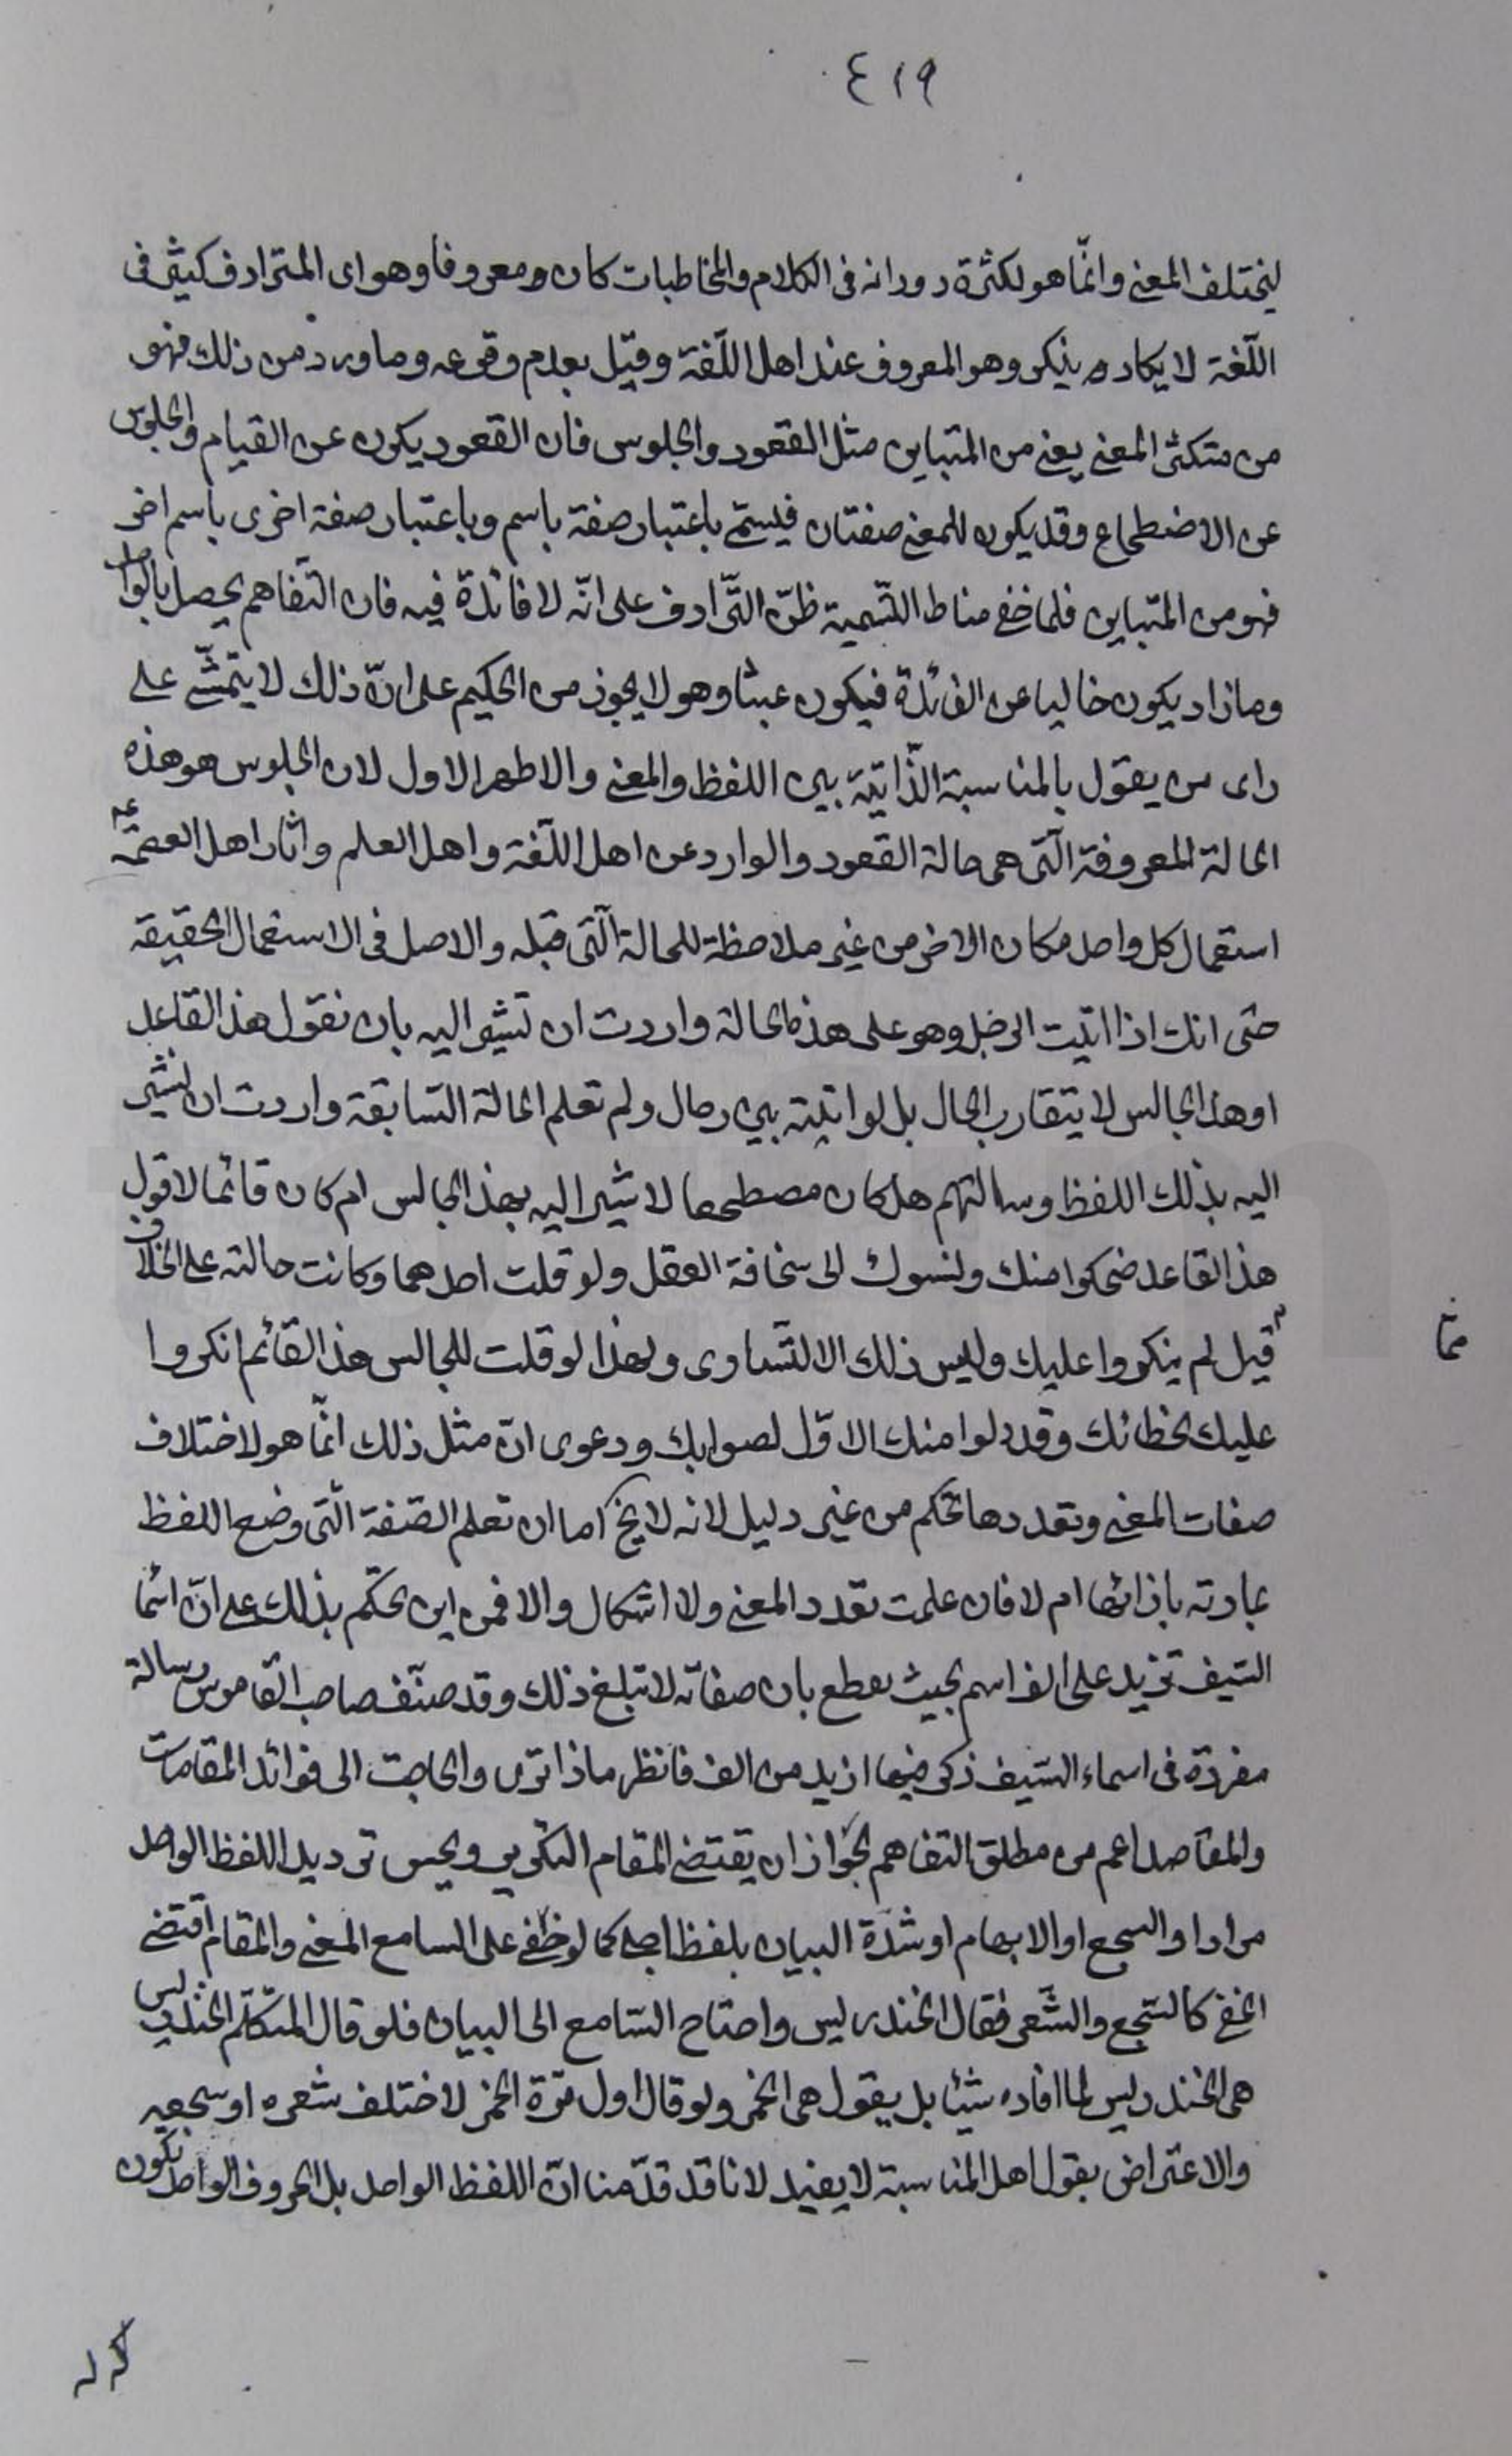 ٤١٩
ليختلف المعنى وانّما هو لكثرة دورانه فى الكلام والمخاطبات كان معروفا وهو اى المترادف كثير فى
اللّغة لا يكاد ينكر وهو المعروف عند اهل اللّغة وقيل بعدم وقوعه وما ورد من ذلك فهو
من متكثر المعنى يعنى من المتباين مثل القعود والجلوس فان القعود يكون عن القيام والجلوس
عن الاضطجاع وقد يكون للمعنى صفتان فيسمّى باعتبار صفة باسم وباعتبار صفة اخرى باسم اخر
فهو من المتباين فلما خفى مناط التّسمية ظنّ التّرادف على انّه لا فائدة فيه فان التّفاهم يحصل بالواحد
وما زاد يكون خاليا عن الفائدة فيكون عبثا وهو لا يجوز من الحكيم على انّ ذلك لا يتمشّى على
راى من يقول بالمناسبة الذّاتيّة بين اللفظ والمعنى والاظهر الاول لان الجلوس هو هذه
الحالة المعروفة الّتى هى حالة القعود والوارد عن اهل اللّغة واهل العلم واثار اهل العصمة ع
استعمال كل واحد مكان الاخر من غير ملاحظة للحالة الّتى قبله والاصل فى الاستعمال الحقيقة
حتى انك اذا اتيت الرجل وهو على هذه الحالة واردت ان تشير اليه بان تقول هذا القاعد
او هذا الجالس لا يتقارب الحال بل لو اتيته بين رجال ولم تعلم الحالة السّابقة واردت ان تشير
اليه بذلك اللفظ وسالتهم هل كان مضطجعا لاشير اليه بهذا الجالس ام كان قائما لاقول
هذا القاعد ضحكوا منك ونسبوك الى سخافة العقل ولو قلت احدهما وكانت حالته على الخلاف
قيل لم ينكروا عليك وليس ذلك الا لتّساوى ولهذا لو قلت للجالس هذا القائم انكروا
ممّا
عليك لخطائك وقد قبلوا منك الاوّل لصوابك ودعوى انّ مثل ذلك انّما هو لاختلاف
صفات المعنى وتعددها تحكم من غير دليل لانه لا يخ اما ان تعلم الصّفة الّتى وضع اللفظ
بمادته بازائها ام لا فان علمت تعدد المعنى ولا اشكال والا فمن اين تحكم بذلك على انّ اسماء
السّيف تزيد على الف اسم بحيث يقطع بان صفاته لا تبلغ ذلك وقد صنّف صاحب القاموس رسالة
مفردة فى اسماء السّيف ذكر فيها ازيد من الف فانظر ماذا ترى والحاجة الى فوائد المقامات
والمقاصد اعم من مطلق التفاهم لجواز ان يقتضى المقام التكرير ويحسن ترديد اللفظ الواحد
مرارا والسجع او الابهام او شدّة البيان بلفظ اجلى كما لو خفى على السامع المعنى والمقام اقتضى
الخفى كالسّجع والشّعر فقال الخندريس واحتاج السّامع الى البيان فلو قال المتكلّم الخندريس
هى الخندريس لما افاده شيئا بل يقول هى الخمر ولو قال اول مرّة الخمر لاختلف شعره او سجعه
والاعتراض بقول اهل المناسبة لا يفيد لانا قد قدّمنا انّ اللفظ الواحد بل الحروف الواحد تكون